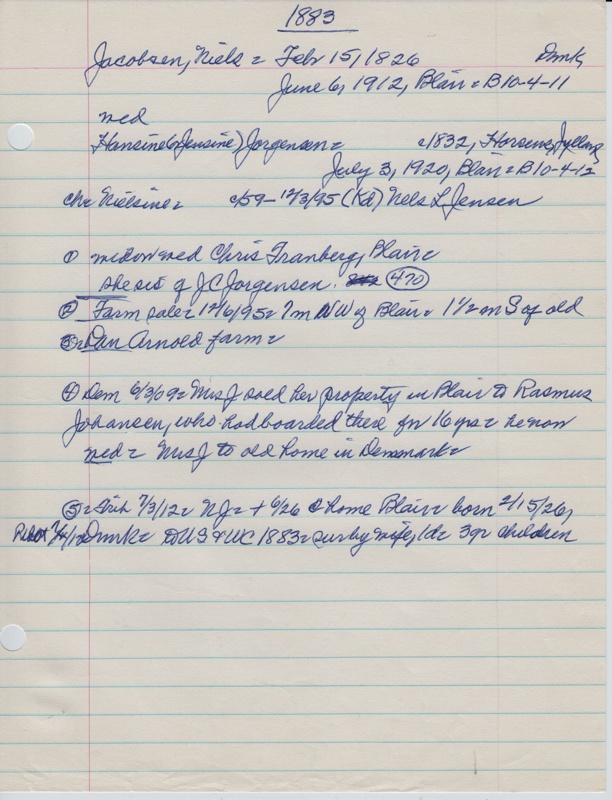 1883
Jacobsen, Niels = Feb 15, 1826 Dmk,
June 6, 1912, Blair = B10-4-11
med
Hansine (or Jensine) Jorgensen = c1832, Horsens, Jylland
July 3, 1920, Blair = B10-4-12
ch = Nielsine = c/59 - 12/3/95 (Kd) Nels L Jensen
① med Chris Tranberg, Blair =
she sis of J C Jorgensen. 470
② Farm sale = 12/6/95 = 7m NW of Blair = 1 1/2 m S of old
③ = Dan Arnold farm =
④ Dem 6/3/09 = Mrs J sold her property in Blair to Rasmus
Johansen, who had boarded there for 16 yrs = he now
med = Mrs J to old home in Denmark =
⑤ = Trib 7/3/12 = NJ = + 6/26 @ home Blair = born 2/15/26,
Pilot Dmk = DUS & WC 1883 = sur by wife, 1d = 3 gr children